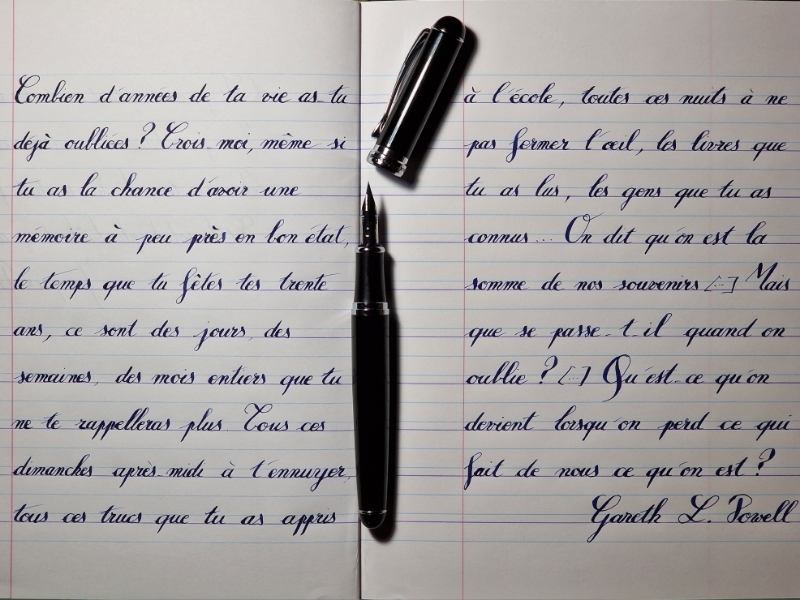 Combien d'années de ta vie as tu
déjà oubliées ? Crois moi, même si
tu as la chance d'avoir une
mémoire à peu près en bon état,
le temps que tu fêtes tes trente
ans, ce sont des jours, des
semaines, des mois entiers que tu
ne te rappelleras plus. Tous ces
dimanches après-midi à t'ennuyer,
tous ces trucs que tu as appris
à l'école, toutes ces nuits à ne
pas fermer l'œil, les livres que
tu as lus, les gens que tu as
connus... On dit qu'on est la
somme de nos souvenirs [...] Mais
que se passe-t-il quand on
oublie ? [...] Qu'est-ce qu'on
devient lorsqu'on perd ce qui
fait de nous ce qu'on est ?
Gareth L. Powell